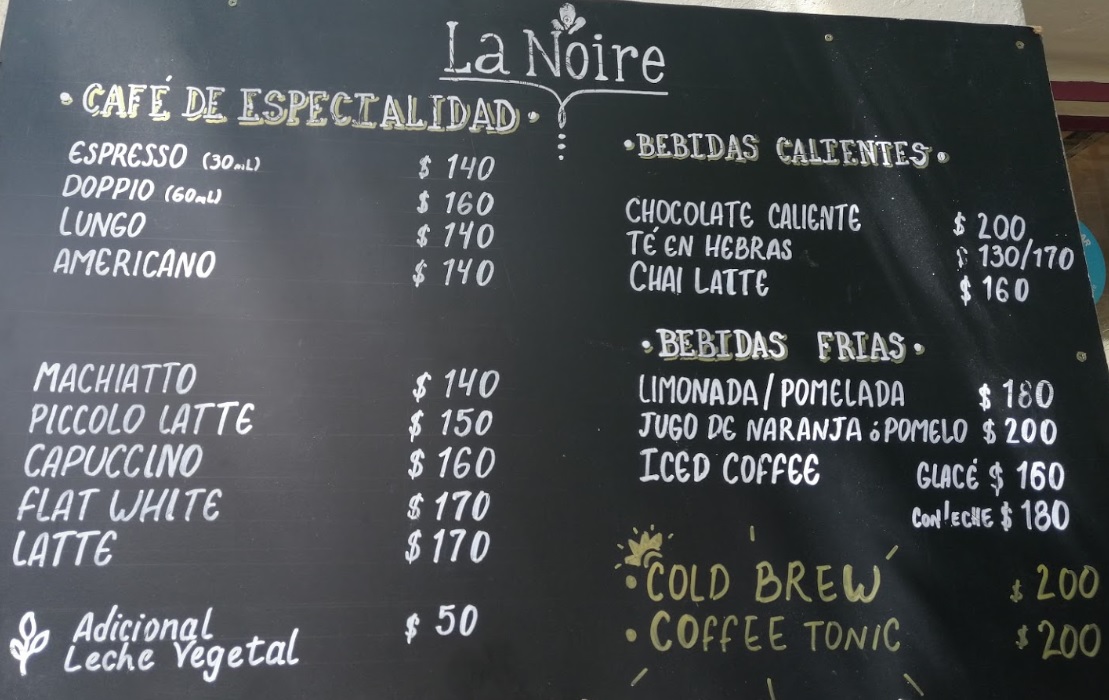 La Noire
• CAFÉ DE ESPECIALIDAD •
ESPRESSO (30mL) $ 140
DOPPIO (60mL) $ 160
LUNGO $ 140
AMERICANO $ 140
MACHIATTO $ 140
PICCOLO LATTE $ 150
CAPUCCINO $ 160
FLAT WHITE $ 170
LATTE $ 170
Adicional
Leche Vegetal $ 50
• BEBIDAS CALIENTES •
CHOCOLATE CALIENTE $ 200
TÉ EN HEBRAS $ 130/170
CHAI LATTE $ 160
• BEBIDAS FRIAS •
LIMONADA/POMELADA $ 180
JUGO DE NARANJA ó POMELO $ 200
ICED COFFEE GLACÉ $ 160
CON LECHE $ 180
• COLD BREW $ 200
• COFFEE TONIC $ 200